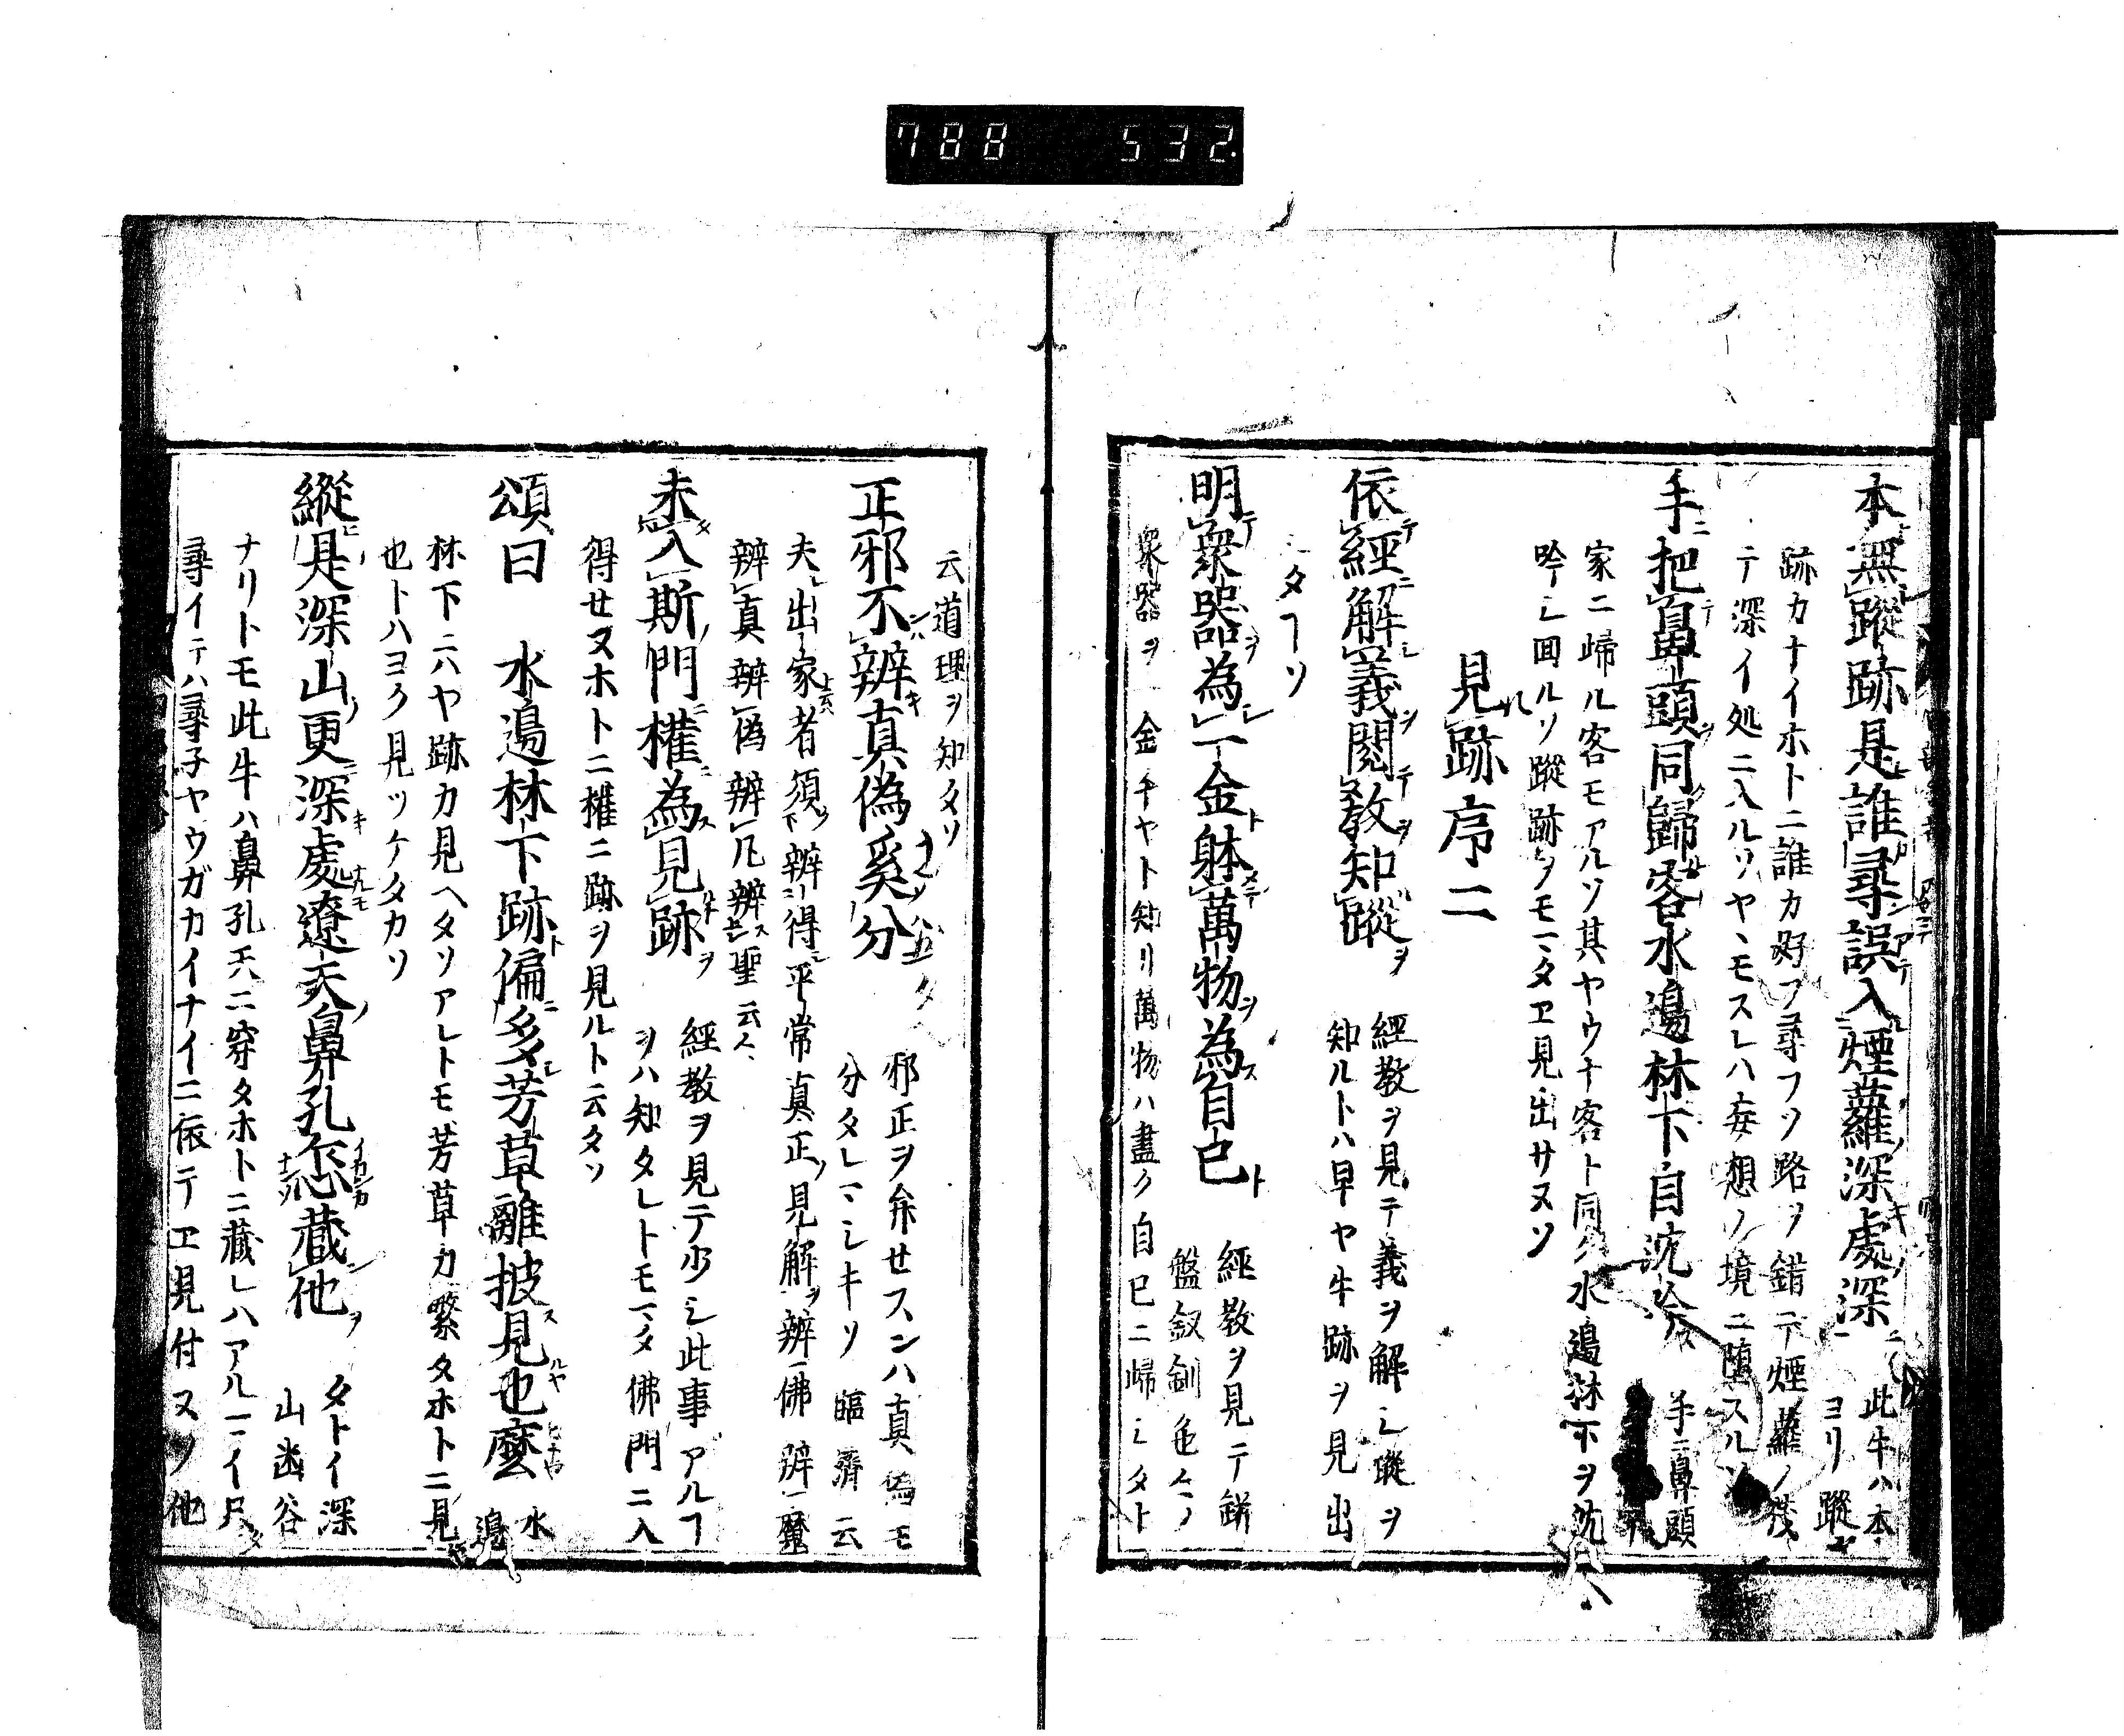 788 532
本無蹤跡是誰尋誤入煙蘿深處深
此牛ハ本
ヨリ蹤
跡カナイホトニ誰カ好フ尋フソ路ヲ錯テ煙蘿ノ茂
テ深イ処ニ入ルソヤヽモスレハ妄想ノ境ニ堕スルソ
手把鼻頭同歸客水邉林下自沈吟
手ニ鼻頭
家ニ歸ル客モアルソ其ヤウナ客ト同ク水邉林下ヲ沈
吟シ回ルソ蹤跡ヲモマタヱ見出サヌソ
見跡序二
依經解義閲教知蹤
經教ヲ見テ義ヲ解シ蹤ヲ
知ルトハ早ヤ牛跡ヲ見出
シタヿソ
明衆器為一金躰萬物為自己
經教ヲ見テ鉼
盤釵釧
衆器ヲ一金チヤト知リ萬物ハ盡ク自己ニ歸シタト
云道理ヲ知タソ
正邪不辨真偽奚分
邪正ヲ弁せスンハ真偽モ
分タレマシキソ臨濟云
夫出家者須辨得平常真正見解辨佛辨魔
辨真辨偽辨凡辨聖云々
未入斯門權為見跡
經教ヲ見テ少シ此事アルヿ
ヲハ知タレトモマタ佛門ニ入
得せヌホトニ權ニ跡ヲ見ルト云タソ
頌曰 水邉林下跡偏多芳草離披見也麼
水
邉
林下ニハヤ跡カ見ヘタソアレトモ芳草カ繁タホトニ見
也トハヨク見ツケタカソ
縱是深山更深處遼天鼻孔怎藏他
タトイ深
山幽谷
ナリトモ此牛ハ鼻孔天ニ穿タホトニ藏レハアルマイ
尋イテハ尋子ヤウガカイナイニ依テヱ見付スノ他